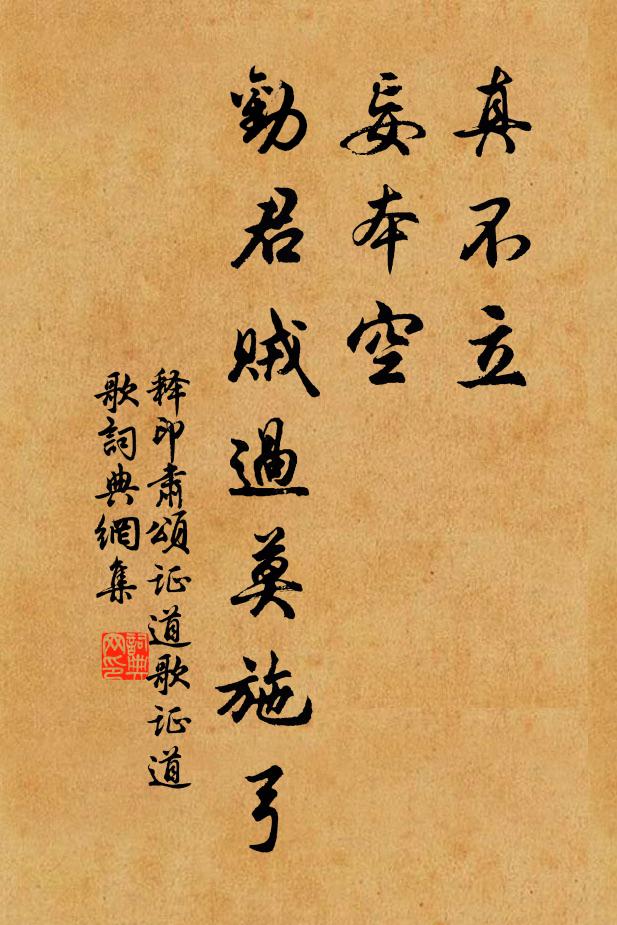 真不立
妄本空
勸君賊過莫施弓
释印肅頌证道歌证道
歌詞典網集
詞典
网印